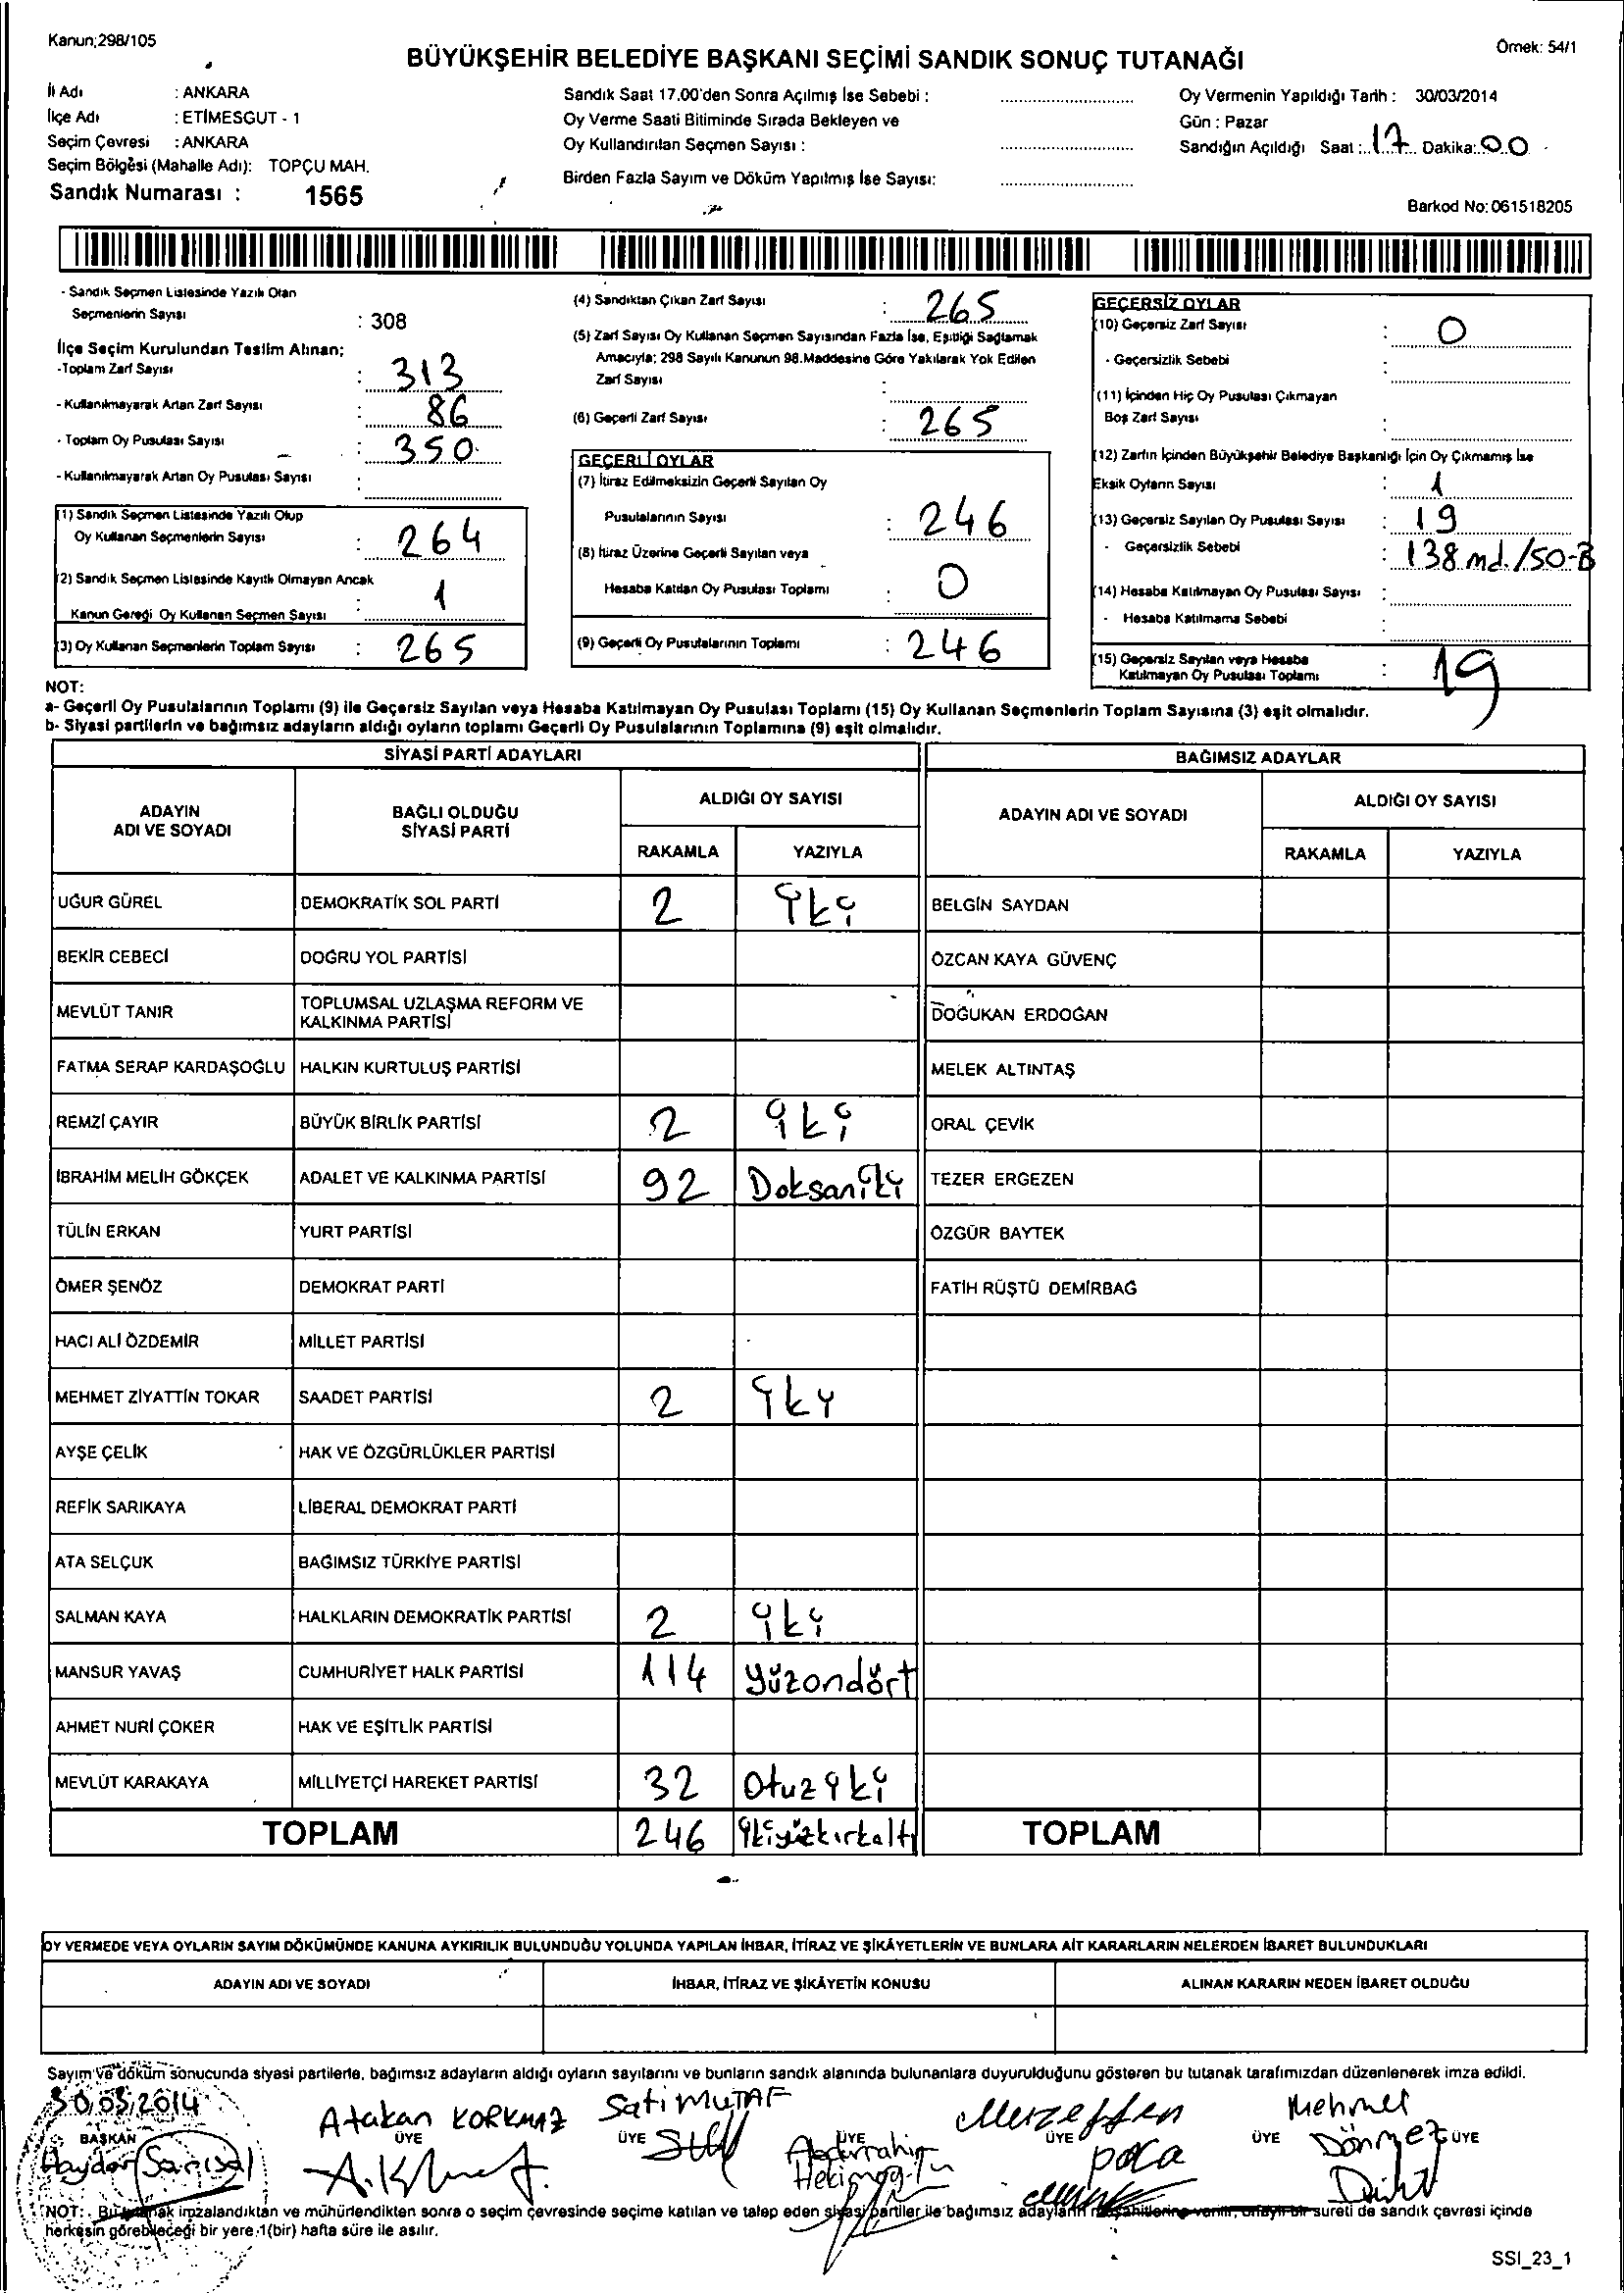 Kanun;298/105
Örnek: 54/1
BÜYÜKŞEHİR BELEDİYE BAŞKANI SEÇİMİ SANDIK SONUÇ TUTANAĞI
İl Adı : ANKARA
İlçe Adı : ETİMESGUT - 1
Seçim Çevresi : ANKARA
Seçim Bölgesi (Mahalle Adı): TOPÇU MAH.
Sandık Numarası : 1565
Sandık Saat 17.00'den Sonra Açılmış İse Sebebi :
Oy Verme Saati Bitiminde Sırada Bekleyen ve
Oy Kullandırılan Seçmen Sayısı :
Birden Fazla Sayım ve Döküm Yapılmış İse Sayısı:
Oy Vermenin Yapıldığı Tarih : 30/03/2014
Gün : Pazar
Sandığın Açıldığı Saat : 17 Dakika: 00
Barkod No:061518205
- Sandık Seçmen Listesinde Yazılı Olan
Seçmenlerin Sayısı : 308
İlçe Seçim Kurulundan Teslim Alınan;
-Toplam Zarf Sayısı : 313
- Kullanılmayarak Artan Zarf Sayısı : 86
- Toplam Oy Pusulası Sayısı : 350
- Kullanılmayarak Artan Oy Pusulası Sayısı :
(1) Sandık Seçmen Listesinde Yazılı Olup
Oy Kullanan Seçmenlerin Sayısı : 264
(2) Sandık Seçmen Listesinde Kayıtlı Olmayan Ancak
Kanun Gereği Oy Kullanan Seçmen Sayısı : 1
(3) Oy Kullanan Seçmenlerin Toplam Sayısı : 265
(4) Sandıktan Çıkan Zarf Sayısı : 265
(5) Zarf Sayısı Oy Kullanan Seçmen Sayısından Fazla İse, Eşitliği Sağlamak
Amacıyla; 298 Sayılı Kanunun 98.Maddesine Göre Yakılarak Yok Edilen
Zarf Sayısı :
(6) Geçerli Zarf Sayısı : 265
GEÇERLİ OYLAR
(7) İtiraz Edilmeksizin Geçerli Sayılan Oy
Pusulalarının Sayısı : 246
(8) İtiraz Üzerine Geçerli Sayılan veya
Hesaba Katılan Oy Pusulası Toplamı : 0
(9) Geçerli Oy Pusulalarının Toplamı : 246
GEÇERSİZ OYLAR
(10) Geçersiz Zarf Sayısı : 0
- Geçersizlik Sebebi :
(11) İçinden Hiç Oy Pusulası Çıkmayan
Boş Zarf Sayısı :
(12) Zarfın İçinden Büyükşehir Belediye Başkanlığı İçin Oy Çıkmamış İse
Eksik Oyların Sayısı : 1
(13) Geçersiz Sayılan Oy Pusulası Sayısı : 19
- Geçersizlik Sebebi : 138 md./50-B
(14) Hesaba Katılmayan Oy Pusulası Sayısı :
- Hesaba Katılmama Sebebi :
(15) Geçersiz Sayılan veya Hesaba
Katılmayan Oy Pusulası Toplamı : 19
NOT:
a- Geçerli Oy Pusulalarının Toplamı (9) ile Geçersiz Sayılan veya Hesaba Katılmayan Oy Pusulası Toplamı (15) Oy Kullanan Seçmenlerin Toplam Sayısına (3) eşit olmalıdır.
b- Siyasi partilerin ve bağımsız adayların aldığı oyların toplamı Geçerli Oy Pusulalarının Toplamına (9) eşit olmalıdır.
SİYASİ PARTİ ADAYLARI BAĞIMSIZ ADAYLAR
ADAYIN ADI VE SOYADI BAĞLI OLDUĞU SİYASİ PARTİ ALDIĞI OY SAYISI ADAYIN ADI VE SOYADI ALDIĞI OY SAYISI
RAKAMLA YAZIYLA RAKAMLA YAZIYLA
UĞUR GÜREL DEMOKRATİK SOL PARTİ 2 İki BELGİN SAYDAN
BEKİR CEBECİ DOĞRU YOL PARTİSİ ÖZCAN KAYA GÜVENÇ
MEVLÜT TANIR TOPLUMSAL UZLAŞMA REFORM VE KALKINMA PARTİSİ DOĞUKAN ERDOĞAN
FATMA SERAP KARDAŞOĞLU HALKIN KURTULUŞ PARTİSİ MELEK ALTINTAŞ
REMZİ ÇAYIR BÜYÜK BİRLİK PARTİSİ 2 iki ORAL ÇEVİK
İBRAHİM MELİH GÖKÇEK ADALET VE KALKINMA PARTİSİ 92 Doksaniki TEZER ERGEZEN
TÜLİN ERKAN YURT PARTİSİ ÖZGÜR BAYTEK
ÖMER ŞENÖZ DEMOKRAT PARTİ FATİH RÜŞTÜ DEMİRBAĞ
HACI ALİ ÖZDEMİR MİLLET PARTİSİ
MEHMET ZİYATTİN TOKAR SAADET PARTİSİ 2 iki
AYŞE ÇELİK HAK VE ÖZGÜRLÜKLER PARTİSİ
REFİK SARIKAYA LİBERAL DEMOKRAT PARTİ
ATA SELÇUK BAĞIMSIZ TÜRKİYE PARTİSİ
SALMAN KAYA HALKLARIN DEMOKRATİK PARTİSİ 2 iki
MANSUR YAVAŞ CUMHURİYET HALK PARTİSİ 114 yüzondört
AHMET NURİ ÇOKER HAK VE EŞİTLİK PARTİSİ
MEVLÜT KARAKAYA MİLLİYETÇİ HAREKET PARTİSİ 32 Otuziki
TOPLAM 246 ikiyüzkırkaltı TOPLAM
OY VERMEDE VEYA OYLARIN SAYIM DÖKÜMÜNDE KANUNA AYKIRILIK BULUNDUĞU YOLUNDA YAPILAN İHBAR, İTİRAZ VE ŞİKÂYETLERİN VE BUNLARA AİT KARARLARIN NELERDEN İBARET BULUNDUKLARI
ADAYIN ADI VE SOYADI İHBAR, İTİRAZ VE ŞİKÂYETİN KONUSU ALINAN KARARIN NEDEN İBARET OLDUĞU
Sayım ve döküm sonucunda siyasi partilerle, bağımsız adayların aldığı oyların sayılarını ve bunların sandık alanında bulunanlara duyurulduğunu gösteren bu tutanak tarafımızdan düzenlenerek imza edildi.
30.03.2014 Atakan KORKMAZ Sati MUTAF Muzeffen poca Mehmet Dönmez
BAŞKAN ÜYE ÜYE ÜYE ÜYE ÜYE ÜYE
Haydar
NOT: Bu tutanak imzalandıktan ve mühürlendikten sonra o seçim çevresinde seçime katılan ve talep eden siyasi partiler ile bağımsız adayların müşahitlerine verilir, onaylı bir sureti de sandık çevresi içinde
herkesin görebileceği bir yere 1(bir) hafta süre ile asılır.
SSI_23_1